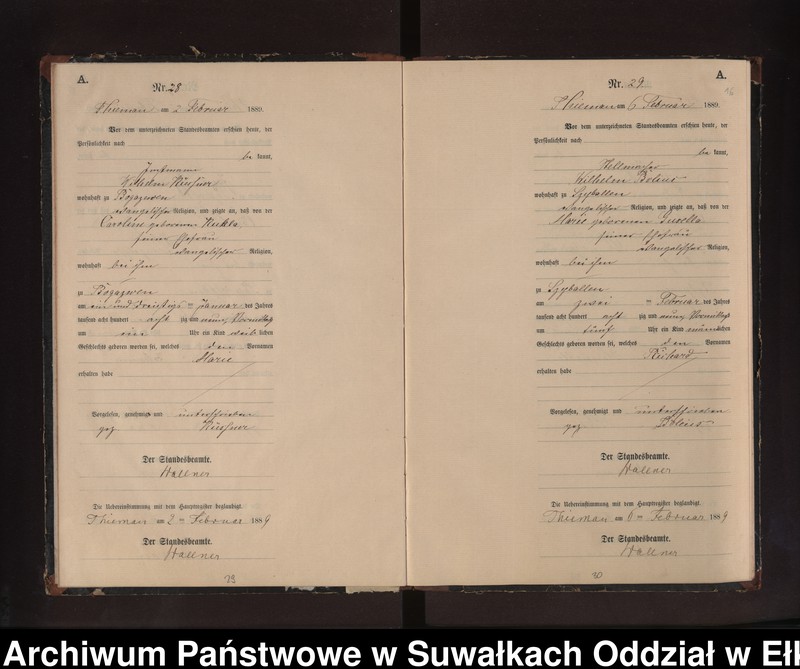 A.
Nr. 28
Thieman am 2 Februar 1889.
Vor dem unterzeichneten Standesbeamten erschien heute, der
Persönlichkeit nach
be kannt,
Wilhelm
wohnhaft zu
evangelischer Religion, und zeigte an, daß von der
Caroline geborenen
seiner Ehefrau
evangelischer Religion,
wohnhaft bei ihm
zu
am ein und dreißigs ten Januar des Jahres
tausend acht hundert acht zig und neun Vormittags
um ein Uhr ein Kind weib lichen
Geschlechts geboren worden sei, welches den Vornamen
Marie
erhalten habe
Vorgelesen, genehmigt und unterschrieben
gez
Der Standesbeamte.
Wallner
Die Uebereinstimmung mit dem Hauptregister beglaubigt.
Thieman am 2 ten Februar 1889
Der Standesbeamte.
Wallner
29
A.
16
Nr. 29
Thieman am 6 Februar 1889.
Vor dem unterzeichneten Standesbeamten erschien heute, der
Persönlichkeit nach
be kannt,
Wilhelm
wohnhaft zu Szyballen
evangelischer Religion, und zeigte an, daß von der
Marie geborenen
seiner Ehefrau
evangelischer Religion,
wohnhaft bei ihm
zu Szyballen
am zwei ten Februar des Jahres
tausend acht hundert acht zig und neun Vormittags
um fünf Uhr ein Kind männlichen
Geschlechts geboren worden sei, welches den Vornamen
Richard
erhalten habe
Vorgelesen, genehmigt und unterschrieben
gez
Der Standesbeamte.
Wallner
Die Uebereinstimmung mit dem Hauptregister beglaubigt.
Thieman am 6 ten Februar 1889
Der Standesbeamte.
Wallner
30
Archiwum Państwowe w Suwałkach Oddział w Eł